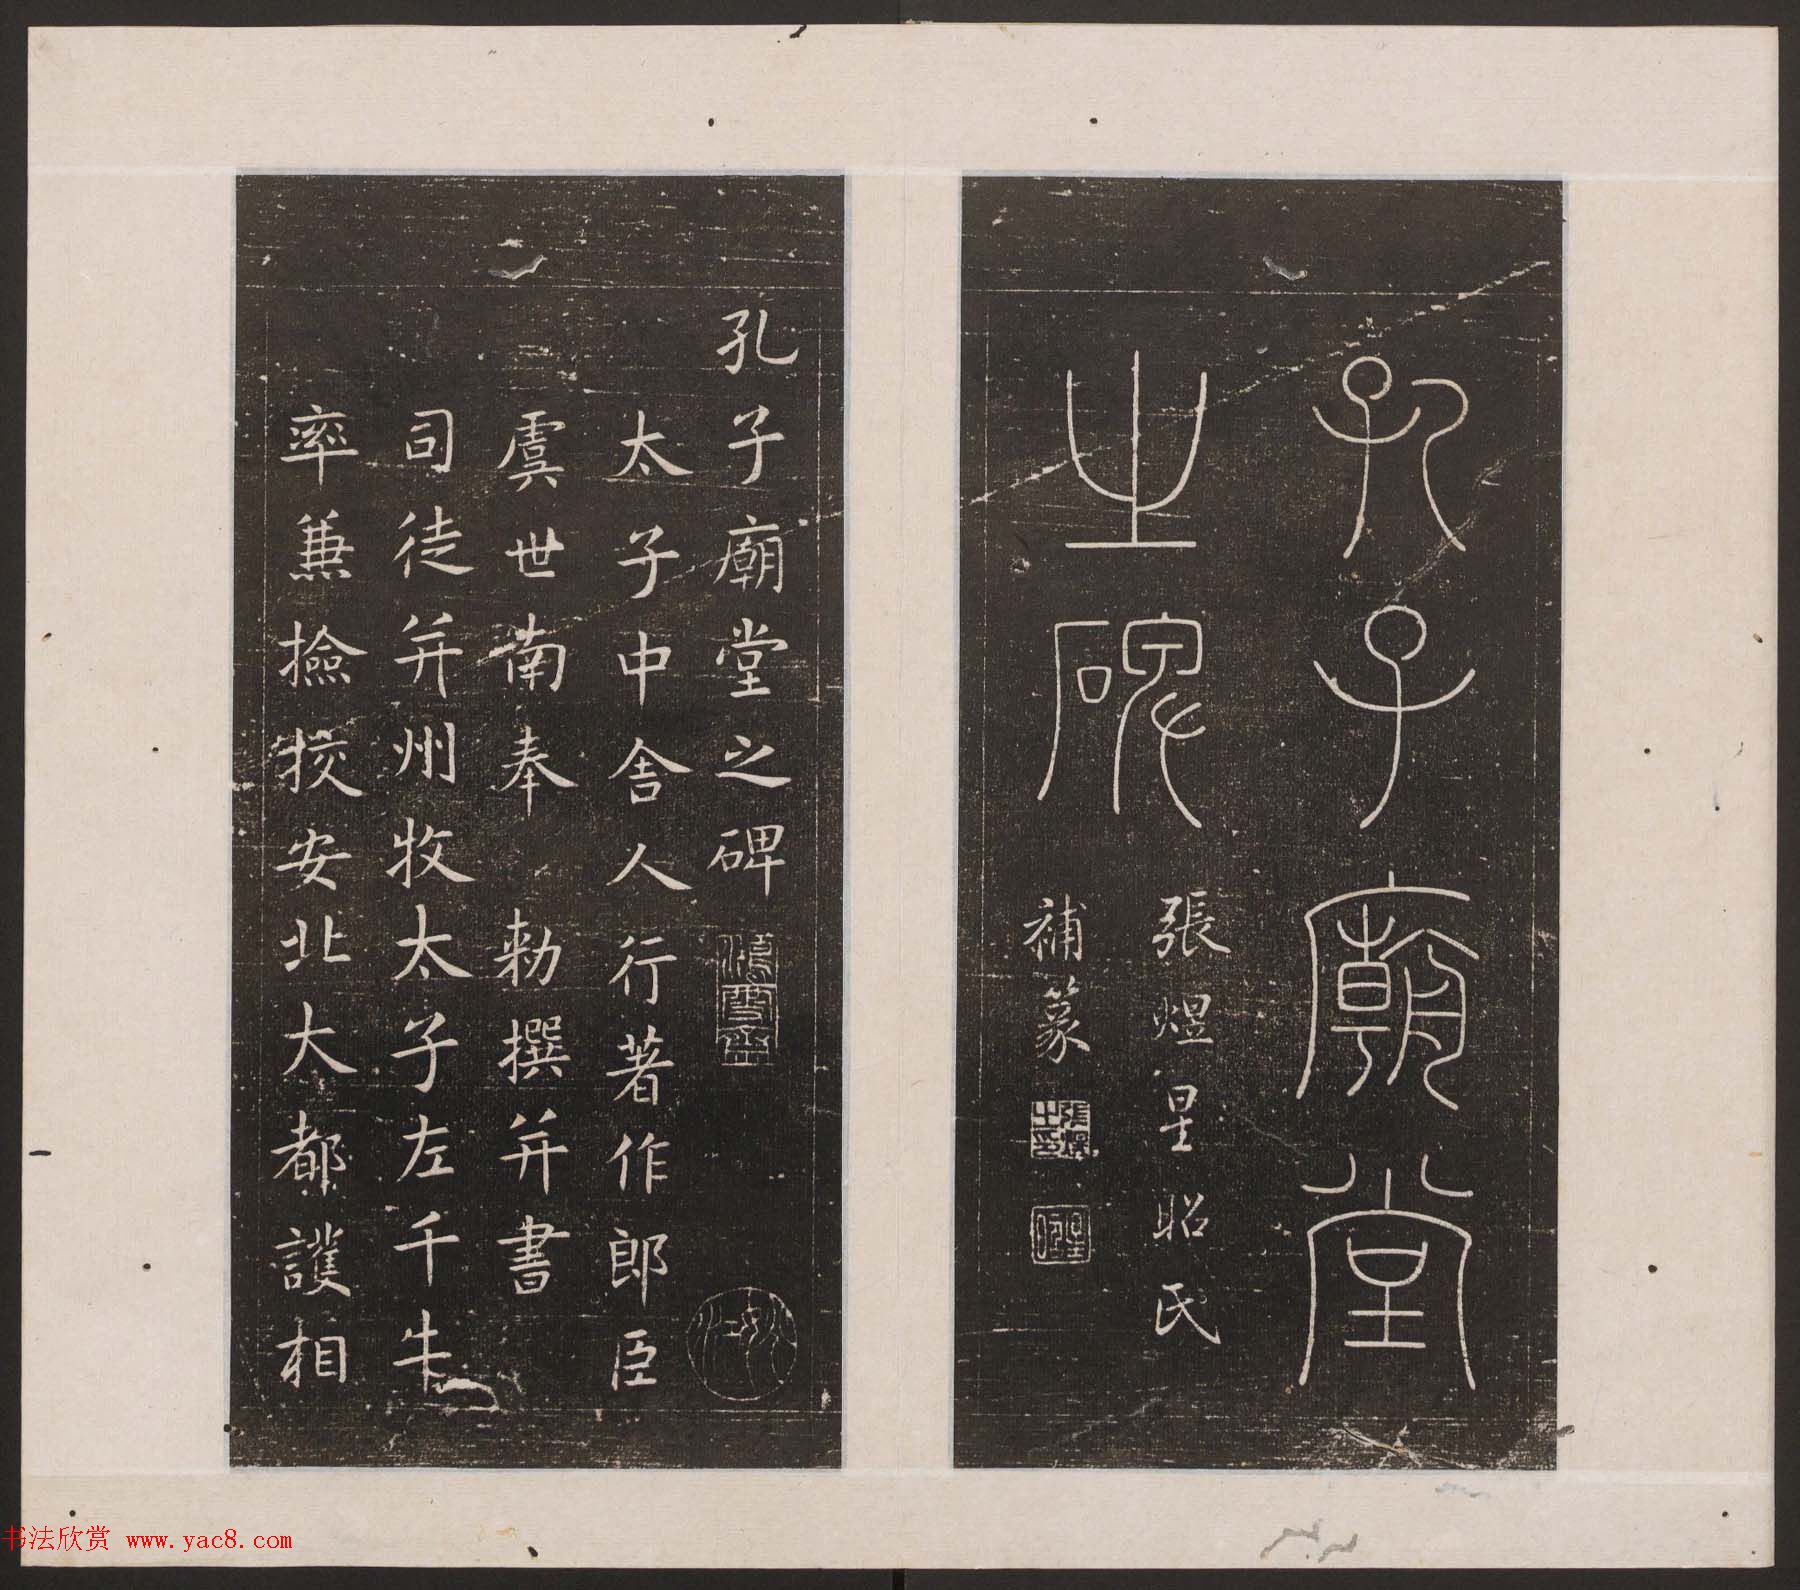 孔子廟堂
之碑
張煜星昭氏
補篆
孔子廟堂之碑
太子中舍人行著作郎臣
虞世南奉 勑撰并書
司徒并州牧太子左千牛
率兼撿挍安北大都護相
书法欣赏 www.yac8.com